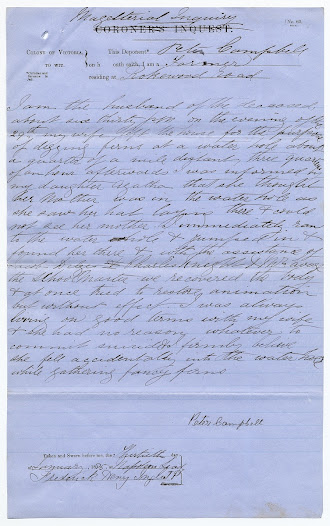 Magisterial Inquiry
CORONER'S INQUEST.
COLONY OF VICTORIA, TO WIT. This Deponent Peter Campbell
on h oath saith, I am a Farmer
residing at Rokewood road
I am the husband of the deceased
about six thirty p.m. on the evening of the
29th my wife left the house for the purpose
of digging ferns at a water hole about
a quarter of a mile distant, three quarters
of an hour afterwards I was informed by
my daughter Agatha that she thought
her Mother was in the water hole as
she saw her hat laying there & could
not see her mother I immediately ran
to the water hole & jumped in &
found her there & with the assistance of
the School Master we removed the body
& at once tried to restore animation
but without effect I was always
living on good terms with my wife
& she had no reason whatever to
commit suicide I firmly believe
she fell accidentally into the water hole
while gathering fancy ferns
Peter Campbell
Taken and Sworn before me, this Thirtieth day
January
Frederick Henry J.P.